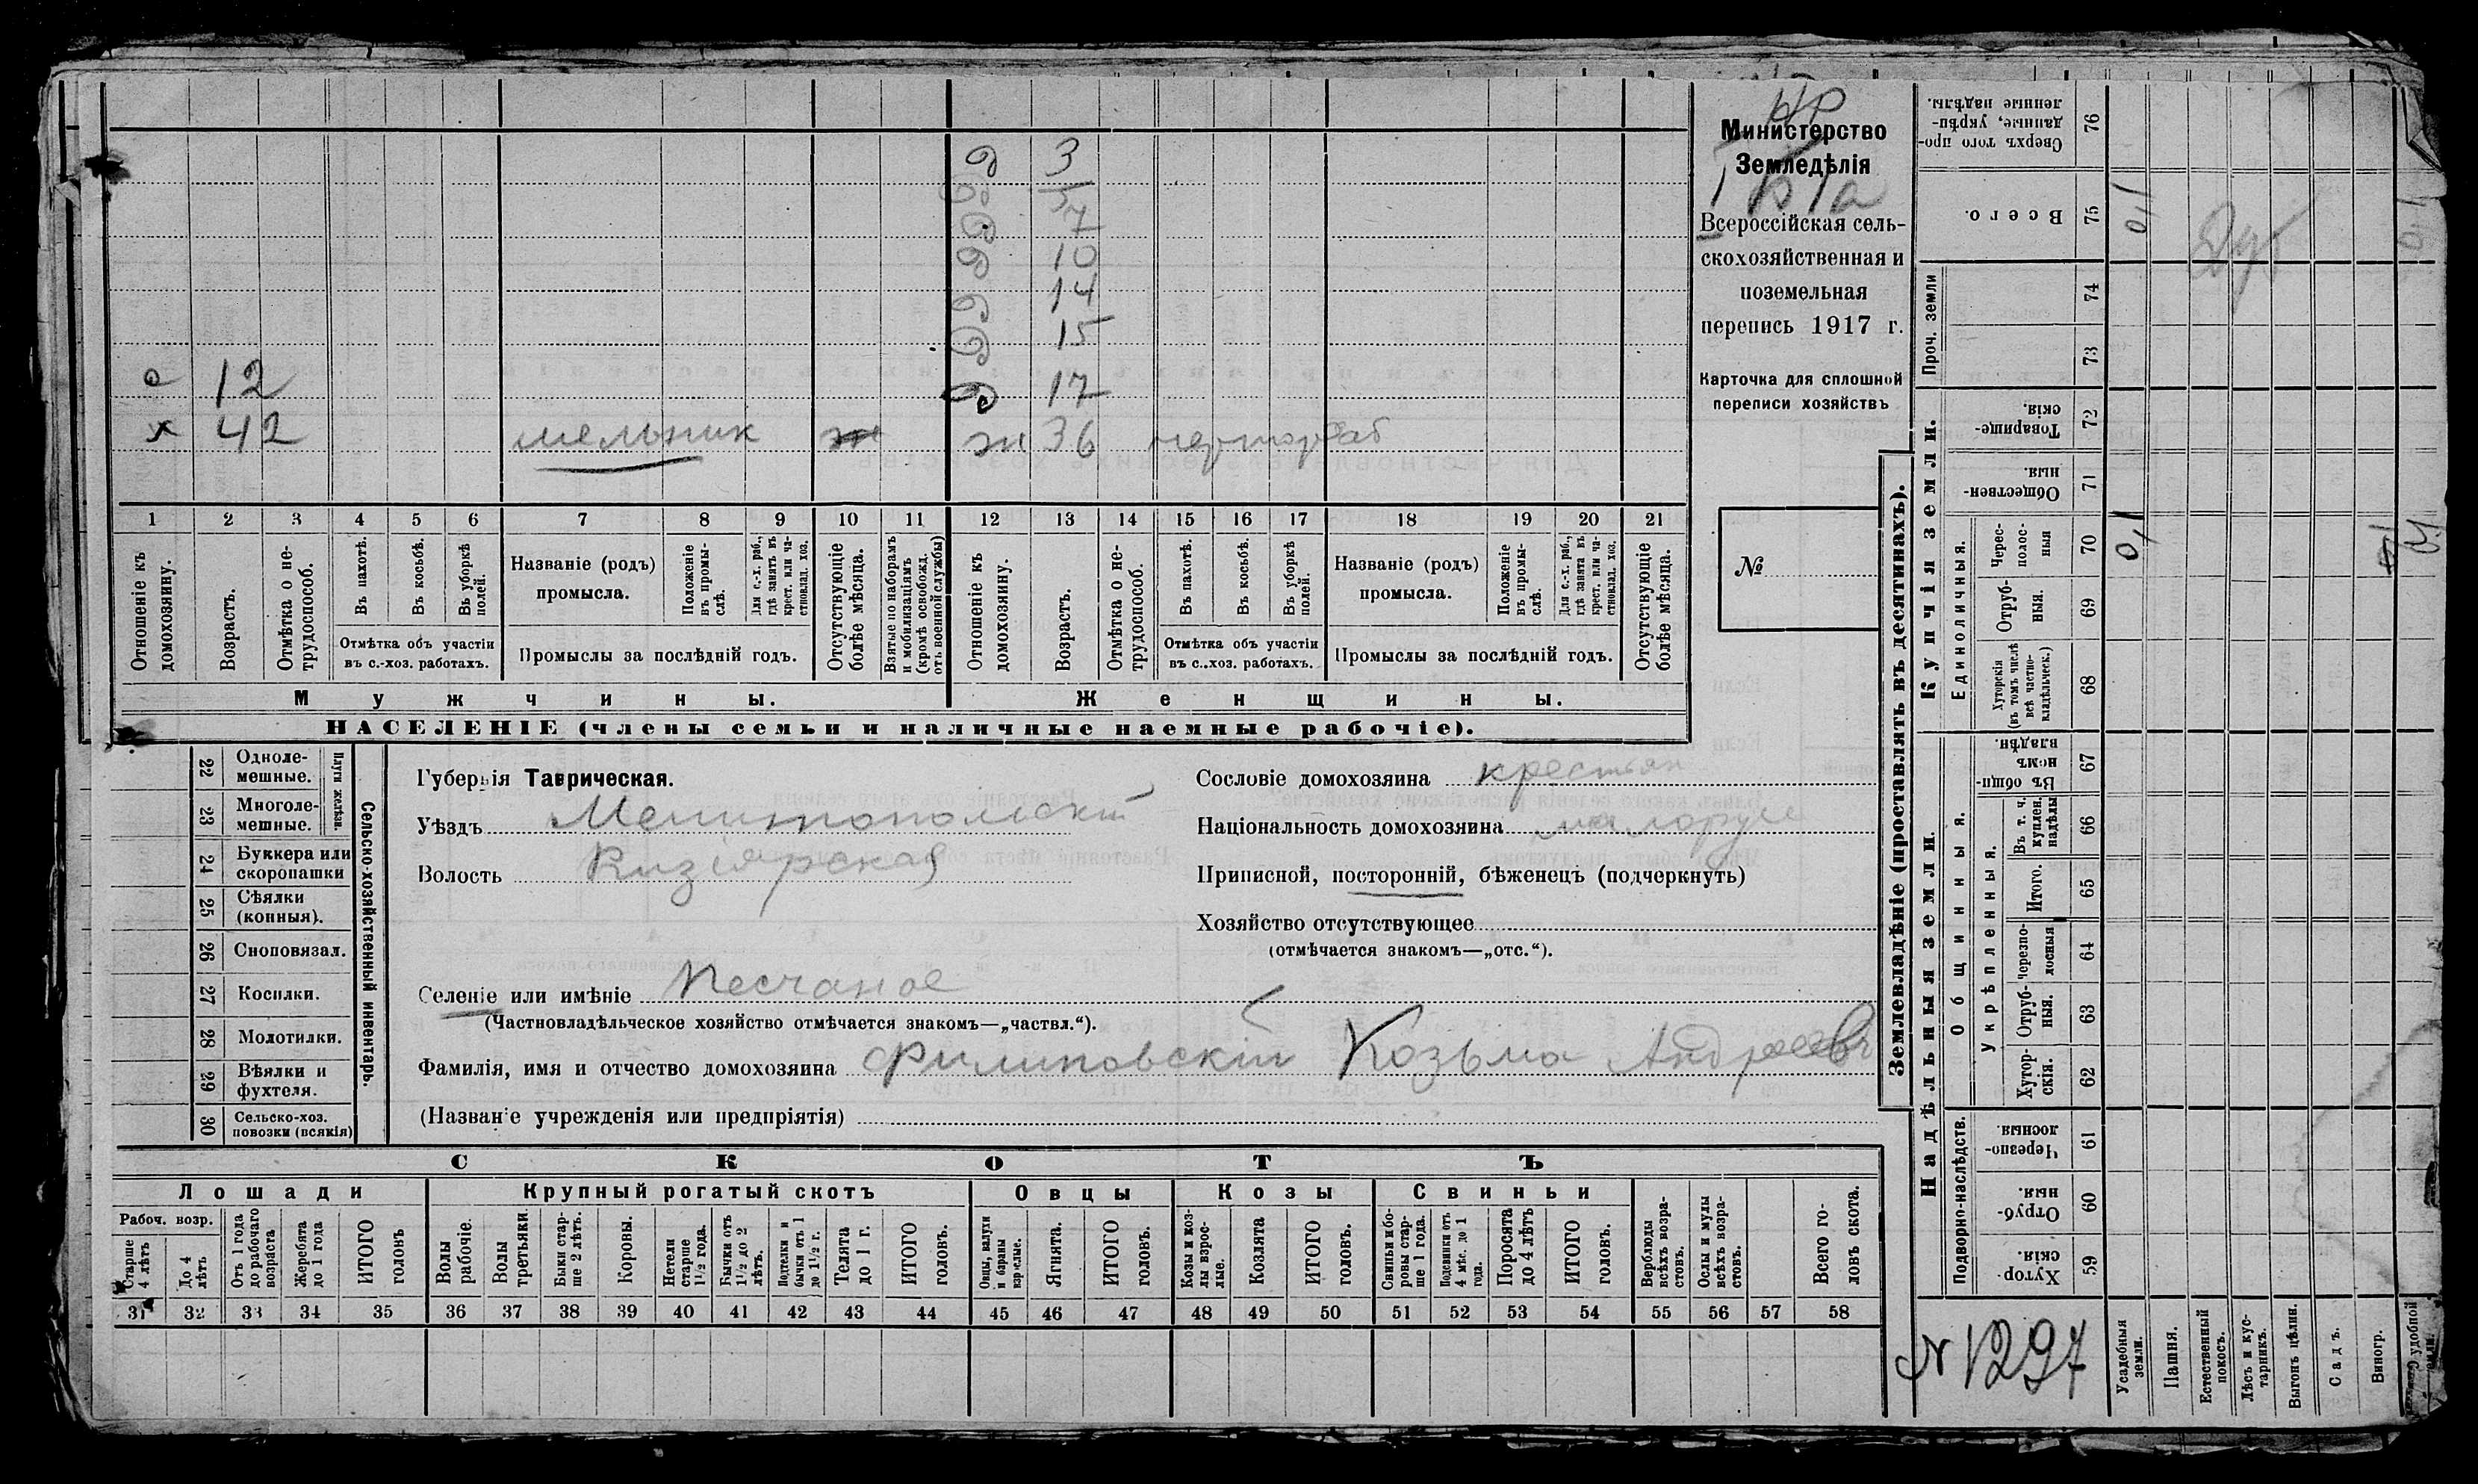 3
5
7
10
14
15
с 12 17
х 42 мельник ж 36
1 2 3 4 5 6 7 8 9 10 11 12 13 14 15 16 17 18 19 20 21
Отношеніе къ домохозяину.
Возрастъ.
Отмѣтка о не-трудоспособ.
Въ пахотѣ.
Въ косьбѣ.
Въ уборкѣ полей.
Отмѣтка объ участіи
въ с.-хоз. работахъ.
Названіе (родъ)
промысла.
Положеніе въ промы-слѣ.
Для с.-х. раб., гдѣ занятъ въ крест. или ча-стновлад. хоз.
Промыслы за послѣдній годъ.
Отсутствующіе болѣе мѣсяца.
Взятые по наборамъ и мобилизаціямъ (кромѣ освобожд. отъ военной службы)
Отношеніе къ домохозяину.
Возрастъ.
Отмѣтка о не-трудоспособ.
Въ пахотѣ.
Въ косьбѣ.
Въ уборкѣ полей.
Отмѣтка объ участіи
въ с.-хоз. работахъ.
Названіе (родъ)
промысла.
Положеніе въ промы-слѣ.
Для с.-х. раб., гдѣ занята въ крест. или ча-стновлад. хоз.
Промыслы за послѣдній годъ.
Отсутствующіе болѣе мѣсяца.
Мужчины. Женщины.
НАСЕЛЕНІЕ (члены семьи и наличные наемные рабочіе).
Министерство
Земледѣлія
Всероссійская сель-
скохозяйственная и
поземельная
перепись 1917 г.
Карточка для сплошной
переписи хозяйствъ
№
22 Одноле-мешные.
23 Многоле-мешные.
Плуги желѣзн.
24 Буккера или скоропашки
25 Сѣялки (конныя).
26 Сноповязал.
27 Косилки.
28 Молотилки.
29 Вѣялки и фухтеля.
30 Сельско-хоз. повозки (всякія)
Сельско-хозяйственный инвентарь.
Губернія Таврическая.
Уѣздъ Мелитопольскій
Волость Кизіярская
Селеніе или имѣніе Песчаное
(Частновладѣльческое хозяйство отмѣчается знакомъ—„частвл.“).
Фамилія, имя и отчество домохозяина Филиповскій Козьма Андреевъ
(Названіе учрежденія или предпріятія)
Сословіе домохозяина крестьян
Національность домохозяина малорус
Приписной, посторонній, бѣженецъ (подчеркнуть)
Хозяйство отсутствующее
(отмѣчается знакомъ—„отс.“).
СКОТЪ
Лошади Крупный рогатый скотъ Овцы Козы Свиньи
Рабоч. возр.
Старше 4 лѣтъ
До 4 лѣтъ
Отъ 1 года до рабочаго возраста
Жеребята до 1 года
ИТОГО головъ
Волы рабочіе.
Волы третьяки.
Быки стар-ше 2 лѣтъ.
Коровы.
Нетели старше 1½ года.
Бычки отъ 1½ до 2 лѣтъ.
Подтелки и бычки отъ 1 до 1½ г.
Телята до 1 г.
ИТОГО головъ.
Овцы, валухи и бараны взрослые.
Ягнята.
ИТОГО головъ.
Козы и коз-лы взрос-лые.
Козлята
ИТОГО головъ.
Свиньи бо-ровы стар-ше 1 года.
Подсвинки отъ 4 мѣс. до 1 года.
Поросята до 4 лѣтъ
ИТОГО головъ.
Верблюды всѣхъ возра-стовъ.
Ослы и мулы всѣхъ возра-стовъ.
Всего го-ловъ скота.
31 32 33 34 35 36 37 38 39 40 41 42 43 44 45 46 47 48 49 50 51 52 53 54 55 56 57 58
Землевладѣніе (проставлять въ десятинахъ).
Надѣльныя земли. Купчія земли.
Проч. земли
Подворно-наслѣдств.
Общинныя.
Укрѣпленныя.
Единоличныя.
Сверхъ того про-данные, укрѣп-ленные надѣлы. 76
Всего. 75 0,1
74
73
Товарище-скія. 72
Обществен-ныя 71
Черес-полос-ныя 70 0,1
Отруб-ныя. 69
Хуторскія (въ томъ числѣ всѣ частно-владѣльческ.) 68
Въ общи-номъ владѣн. 67
Въ т. ч. куплен. надѣлы 66
Итого. 65
Черезпо-лосныя 64
Отруб-ныя. 63
Хутор-скія. 62
Черезпо-лосныя. 61
Отруб-ныя. 60
Хутор-скія. 59
№ 1297
Усадебныя земли.
Пашня.
Естественный покосъ.
Лѣсъ и кус-тарникъ.
Выгонъ цѣлин.
Садъ.
Виногр.
удобной земли.